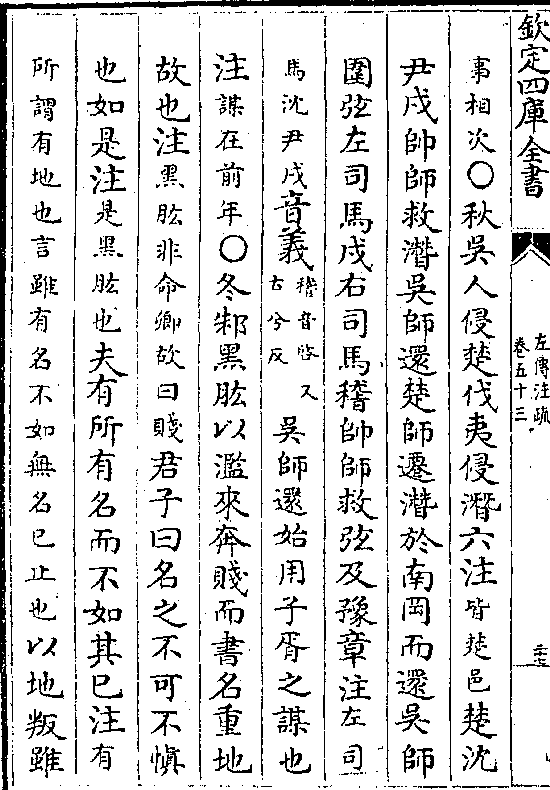 欽定四庫全書
左傳注疏
卷五十三
事相次○秋吳人侵楚伐夷侵潛六注皆楚邑楚沈
尹戌帥師救潛吳師還楚師遷潛於南岡而還吳師
圍弦左司馬戌右司馬稽帥師救弦及豫章注左司
馬沈尹戌音義稽音啓又
古兮反
吳師還始用子胥之謀也
注謀在前年○冬邾黑肱以濫來奔賤而書名重地
故也注黑肱非命卿故曰賤君子曰名之不可不慎
也如是注是黑肱也夫有所有名而不如其已注有
所謂有地也言雖有名不如無名已止也以地叛雖